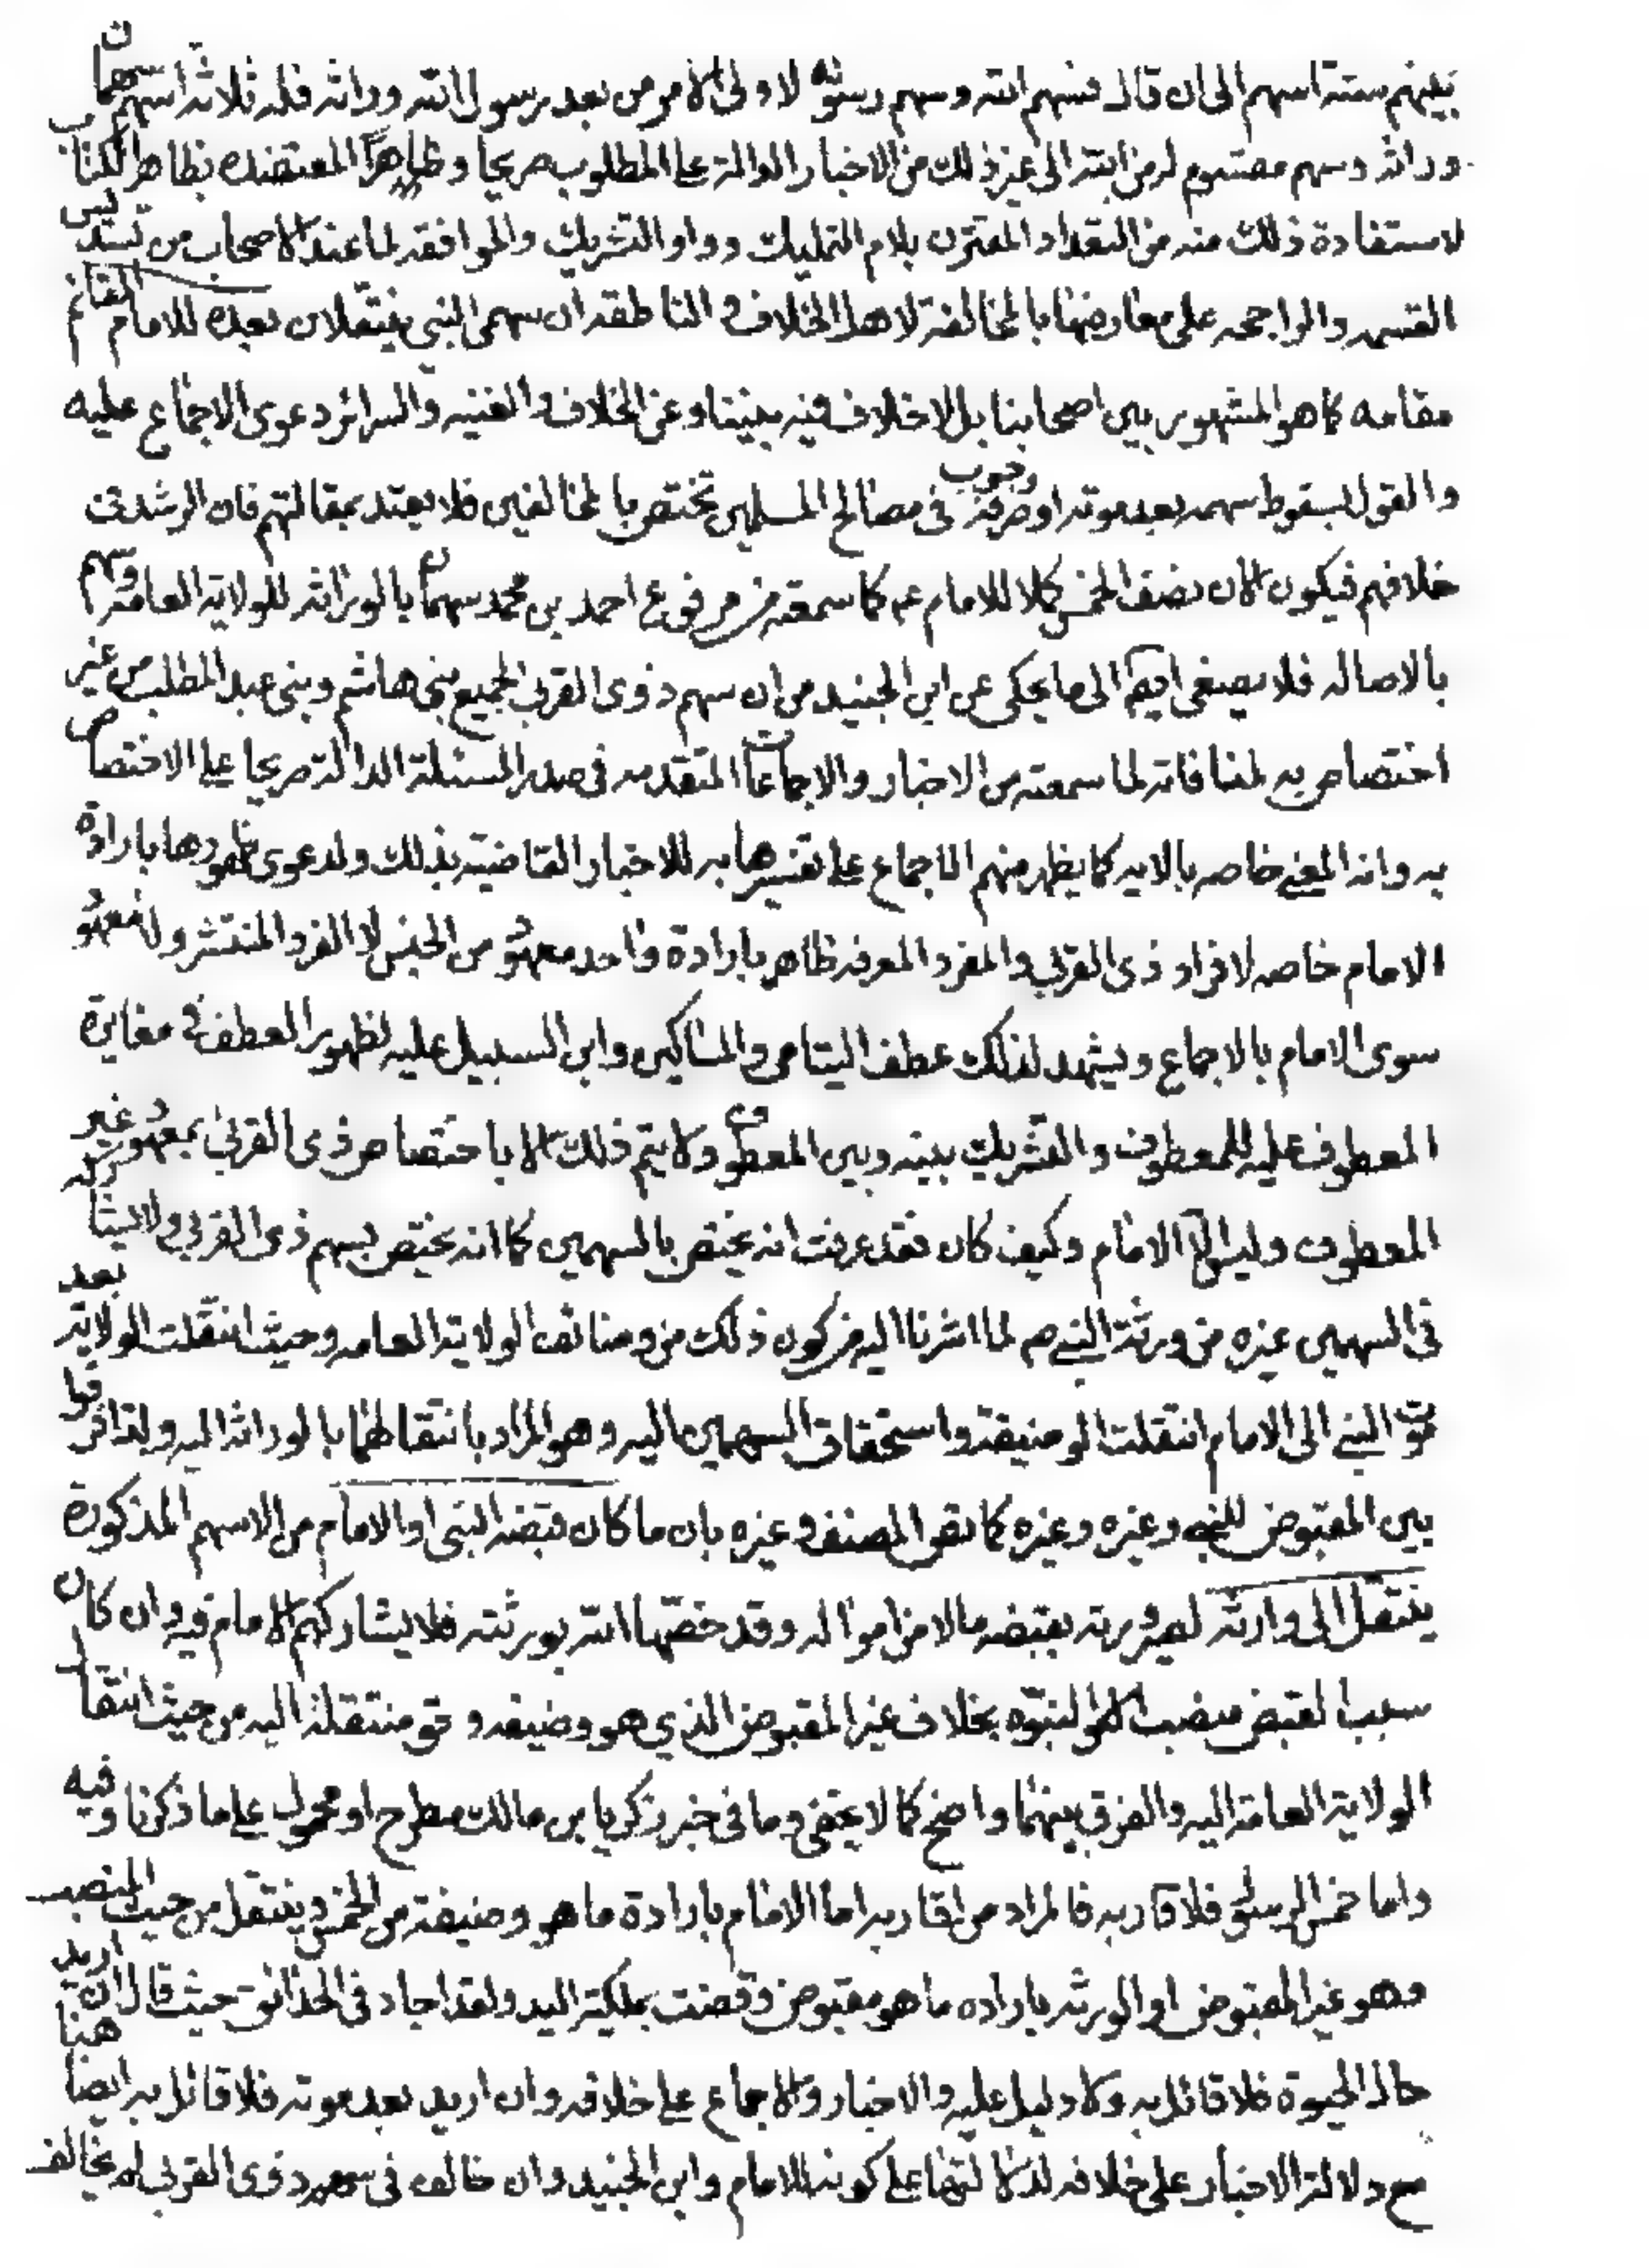 بينهم ستة اسهم الى ان قال فسهم الله وسهم رسوله لاولى الامر من بعد رسول الله وراثة فله ثلاثة اسهم سهمان
وراثة وسهم مقسوم له من الله الى غير ذلك من الاخبار الدالة على المطلوب صريحا وظاهراً المعتضده بظاهر الكتاب
لاستفادة ذلك منه من التعداد المقترن بلام التمليك وواو التشريك والموافقه لما عند الاصحاب من تسديس
القسمه والراجحه على معارضها بالمخالفة لاهل الخلاف و الناطقه ان سهمى النبى ينتقلان بعده للامام القائم
مقامه كما هو المشهور بين اصحابنا بل لا خلاف فيه بيننا وعن الخلاف و الغنيه والسرائر دعوى الاجماع عليه
والقول بسقوط سهمه بعد موته او وجوب صرفه فى مصالح المسلمين تختص بالمخالفين فلا يعتد بمقالتهم فان الرشد فى
خلافهم فيكون الان نصف الخمس كملا للامام عم كما سمعته من مرفوع احمد بن محمد سهمان بالوراثه للولاية العامة وسهم
بالاصاله فلا يصغى ايضا الى ما يحكى عن ابن الجنيد من ان سهم ذوى القربى لجميع بنى هاشم وبنى عبد المطلب من غير
اختصاص به لمنافاته لما سمعته من الاخبار والاجماعات المتقدمه فى صدر المسئلة الدالة صريحا على الاختصاص
به وانه المعنى خاصه بالايه كما يظهر منهم الاجماع على تفسيرها به للاخبار القاضية بذلك ولدعوى ظهورها بارادة
الامام خاصه لافراد ذى القربى والمفرد المعرفه ظاهر بارادة واحد معهود من الجنس لا الفرد المنتشر ولا معهود
سوى الامام بالاجماع ويشهد لذلك عطف اليتامى والمساكين وابن السبيل عليه لظهور العطف فى مغايرة
المعطوف عليه للمعطوف والتشريك بينه وبين المعطوف ولا يتم ذلك الا باختصاص ذى القربى بمعهود غير
المعطوف وليس الا الامام وكيف كان فقد عرفت انه يختص بالسهمين كما انه يختص بسهم ذى القربى ولا يشاركه
فى السهمين غيره من ورثة النبى ص لما اشرنا اليه من كون ذلك من وضائف الولاية العامه وحيث انتقلت الولاية بعد
موت النبى الى الامام انتقلت الوضيفة واستحقاق السهمين اليه وهو المراد بانتقالهما بالوراثة اليه ولقد افرقوا
بين المقبوض للنبى وغيره وغيره كما نص المصنف وغيره بان ما كان قبضه النبى او الامام من الاسهم المذكورة
ينتقل الى وارثه لصيرورته بقبضه مالا من امواله وقد خصها الله بورثته فلا يشاركهم الامام فيه وان كان
سبب القبض منصب النبوه بخلاف غير المقبوض الذي هو وضيفه منتقلة اليه من حيث انتقال
الولاية العامة اليه والفرق بينهما واضح كما لا يخفى وما فى خبر زكريا بن مالك مطرح او محمول على ما ذكرنا وفيه
واما خمس الرسول فلاقاربه فالمراد من اقاربه اما الامام بارادة ما هو وضيفة من الخمس وينتقل من حيث المنصب
وهو غير المقبوض او الورثه باراده ما هو مقبوض وقضت بملكية اليد ولقد اجاد فى الحدائق حيث قال ان اريد هنا
حال الحيوة فلا قائل به ولا دليل عليه والاخبار والاجماع على خلافه وان اريد بعد موته فلا قائل به ايضا
مع دلالة الاخبار على خلافه لدلالتها على كونه للامام وابن الجنيد وان خالف فى سهم ذوى القربى لم يخالف